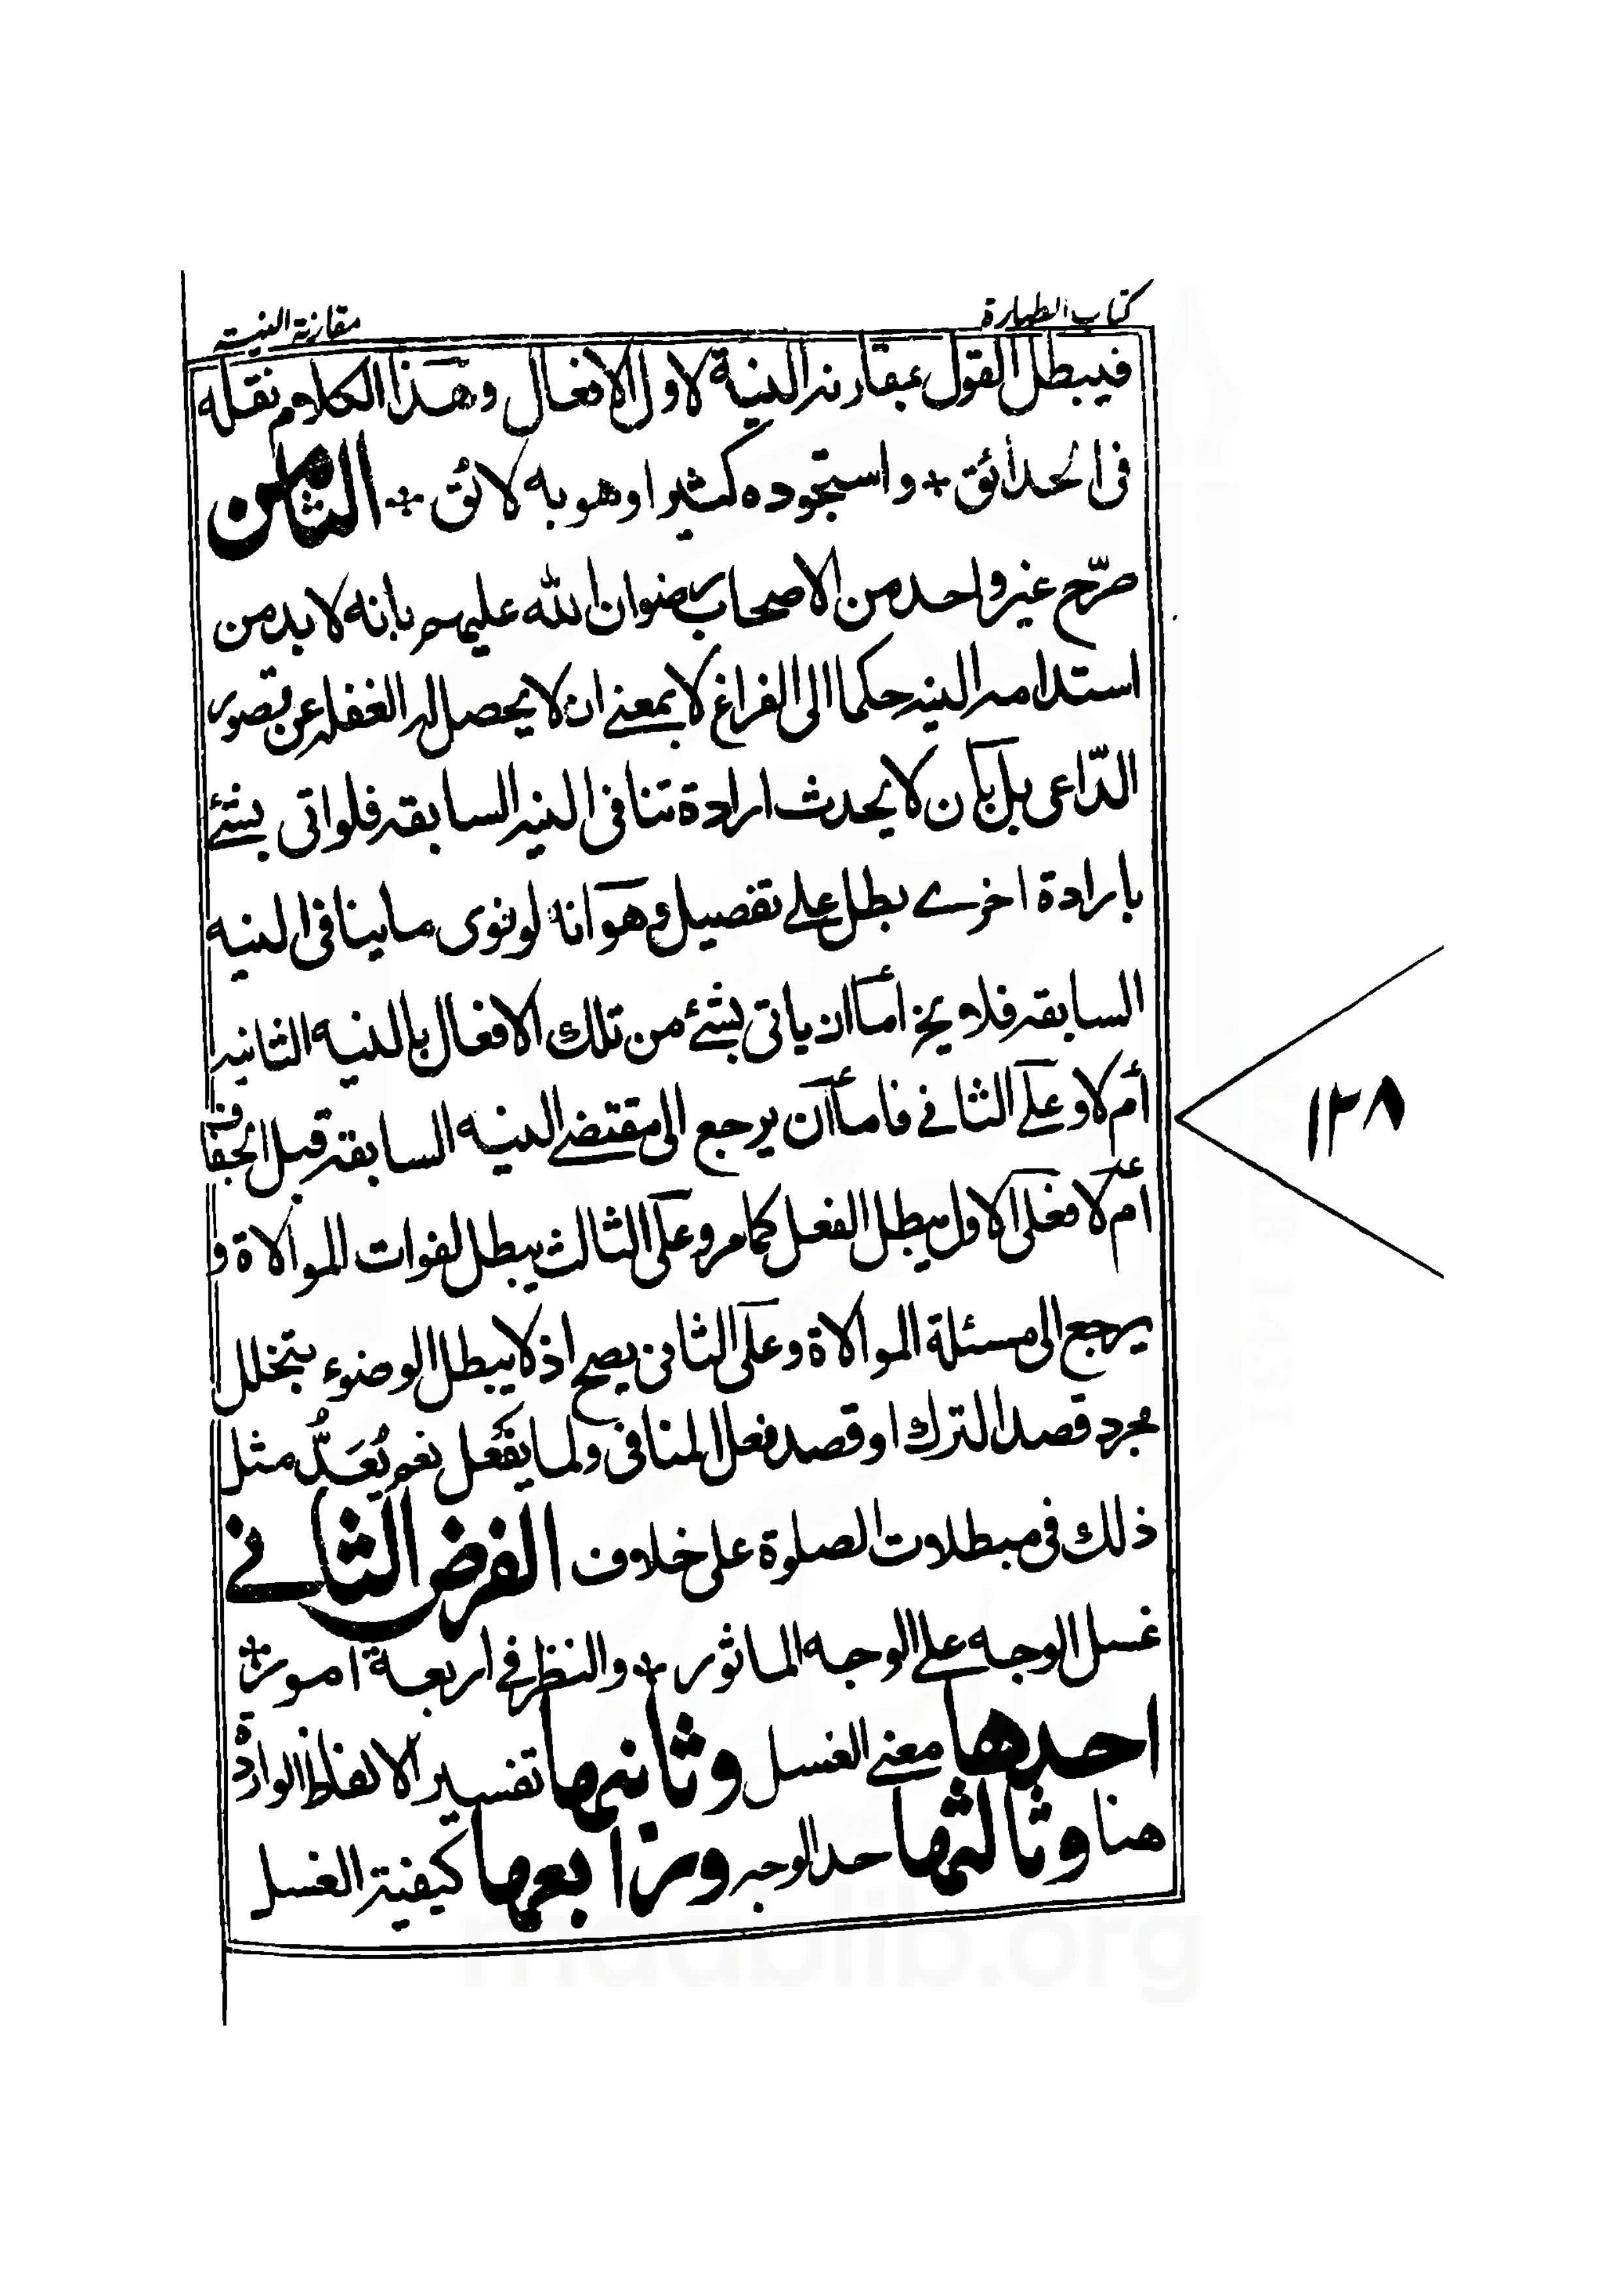 كتاب الطهارة
مقارنة النية
فيبطل القول بمقارنه النية لاول الافعال وهذا الكلام نقله
فى الحدائق + واستجوده كثيرا وهو به لائق + الثامن
صرّح غير واحد من الاصحاب رضوان الله عليهم بانه لا بد من
استدامه النيه حكما الى الفراغ لا بمعنے ان لا يحصل له الغفله عن تصور
الدّاعى بل بأن لا يحدث ارادة تنافى النيه السابقه فلو اتى بشئ
بارادة اخرے بطل علے تفصيل وهو انه لو نوى ما ينافى النيه
السابقه فلا يخ أما ان ياتى بشئ من تلك الافعال بالنيه الثانيه
أم لا و على الثانے فاما أن يرجع الى مقتضے النيه السابقه قبل الجفاف
أم لا فعلى الاول يبطل الفعل كما مر وعلى الثالث يبطل لفوات الموالاة و
يرجع الى مسئلة الموالاة وعلى الثانى يصح اذ لا يبطل الوضوء بتخلل
مجرد قصد الترك او قصد فعل المنافى ولما يفعل نعم يُعَدُّ مثل
ذلك فى مبطلات الصلوة على خلاف الفرض الثانے
غسل الوجه علے الوجه الماثور + والنظر فے اربعة امور +
احدها معنے الغسل وثانيها تفسير الالفاظ الواردة
هنا وثالثها حد الوجه ورابعها كيفية الغسل
١٣٨
madblib.org